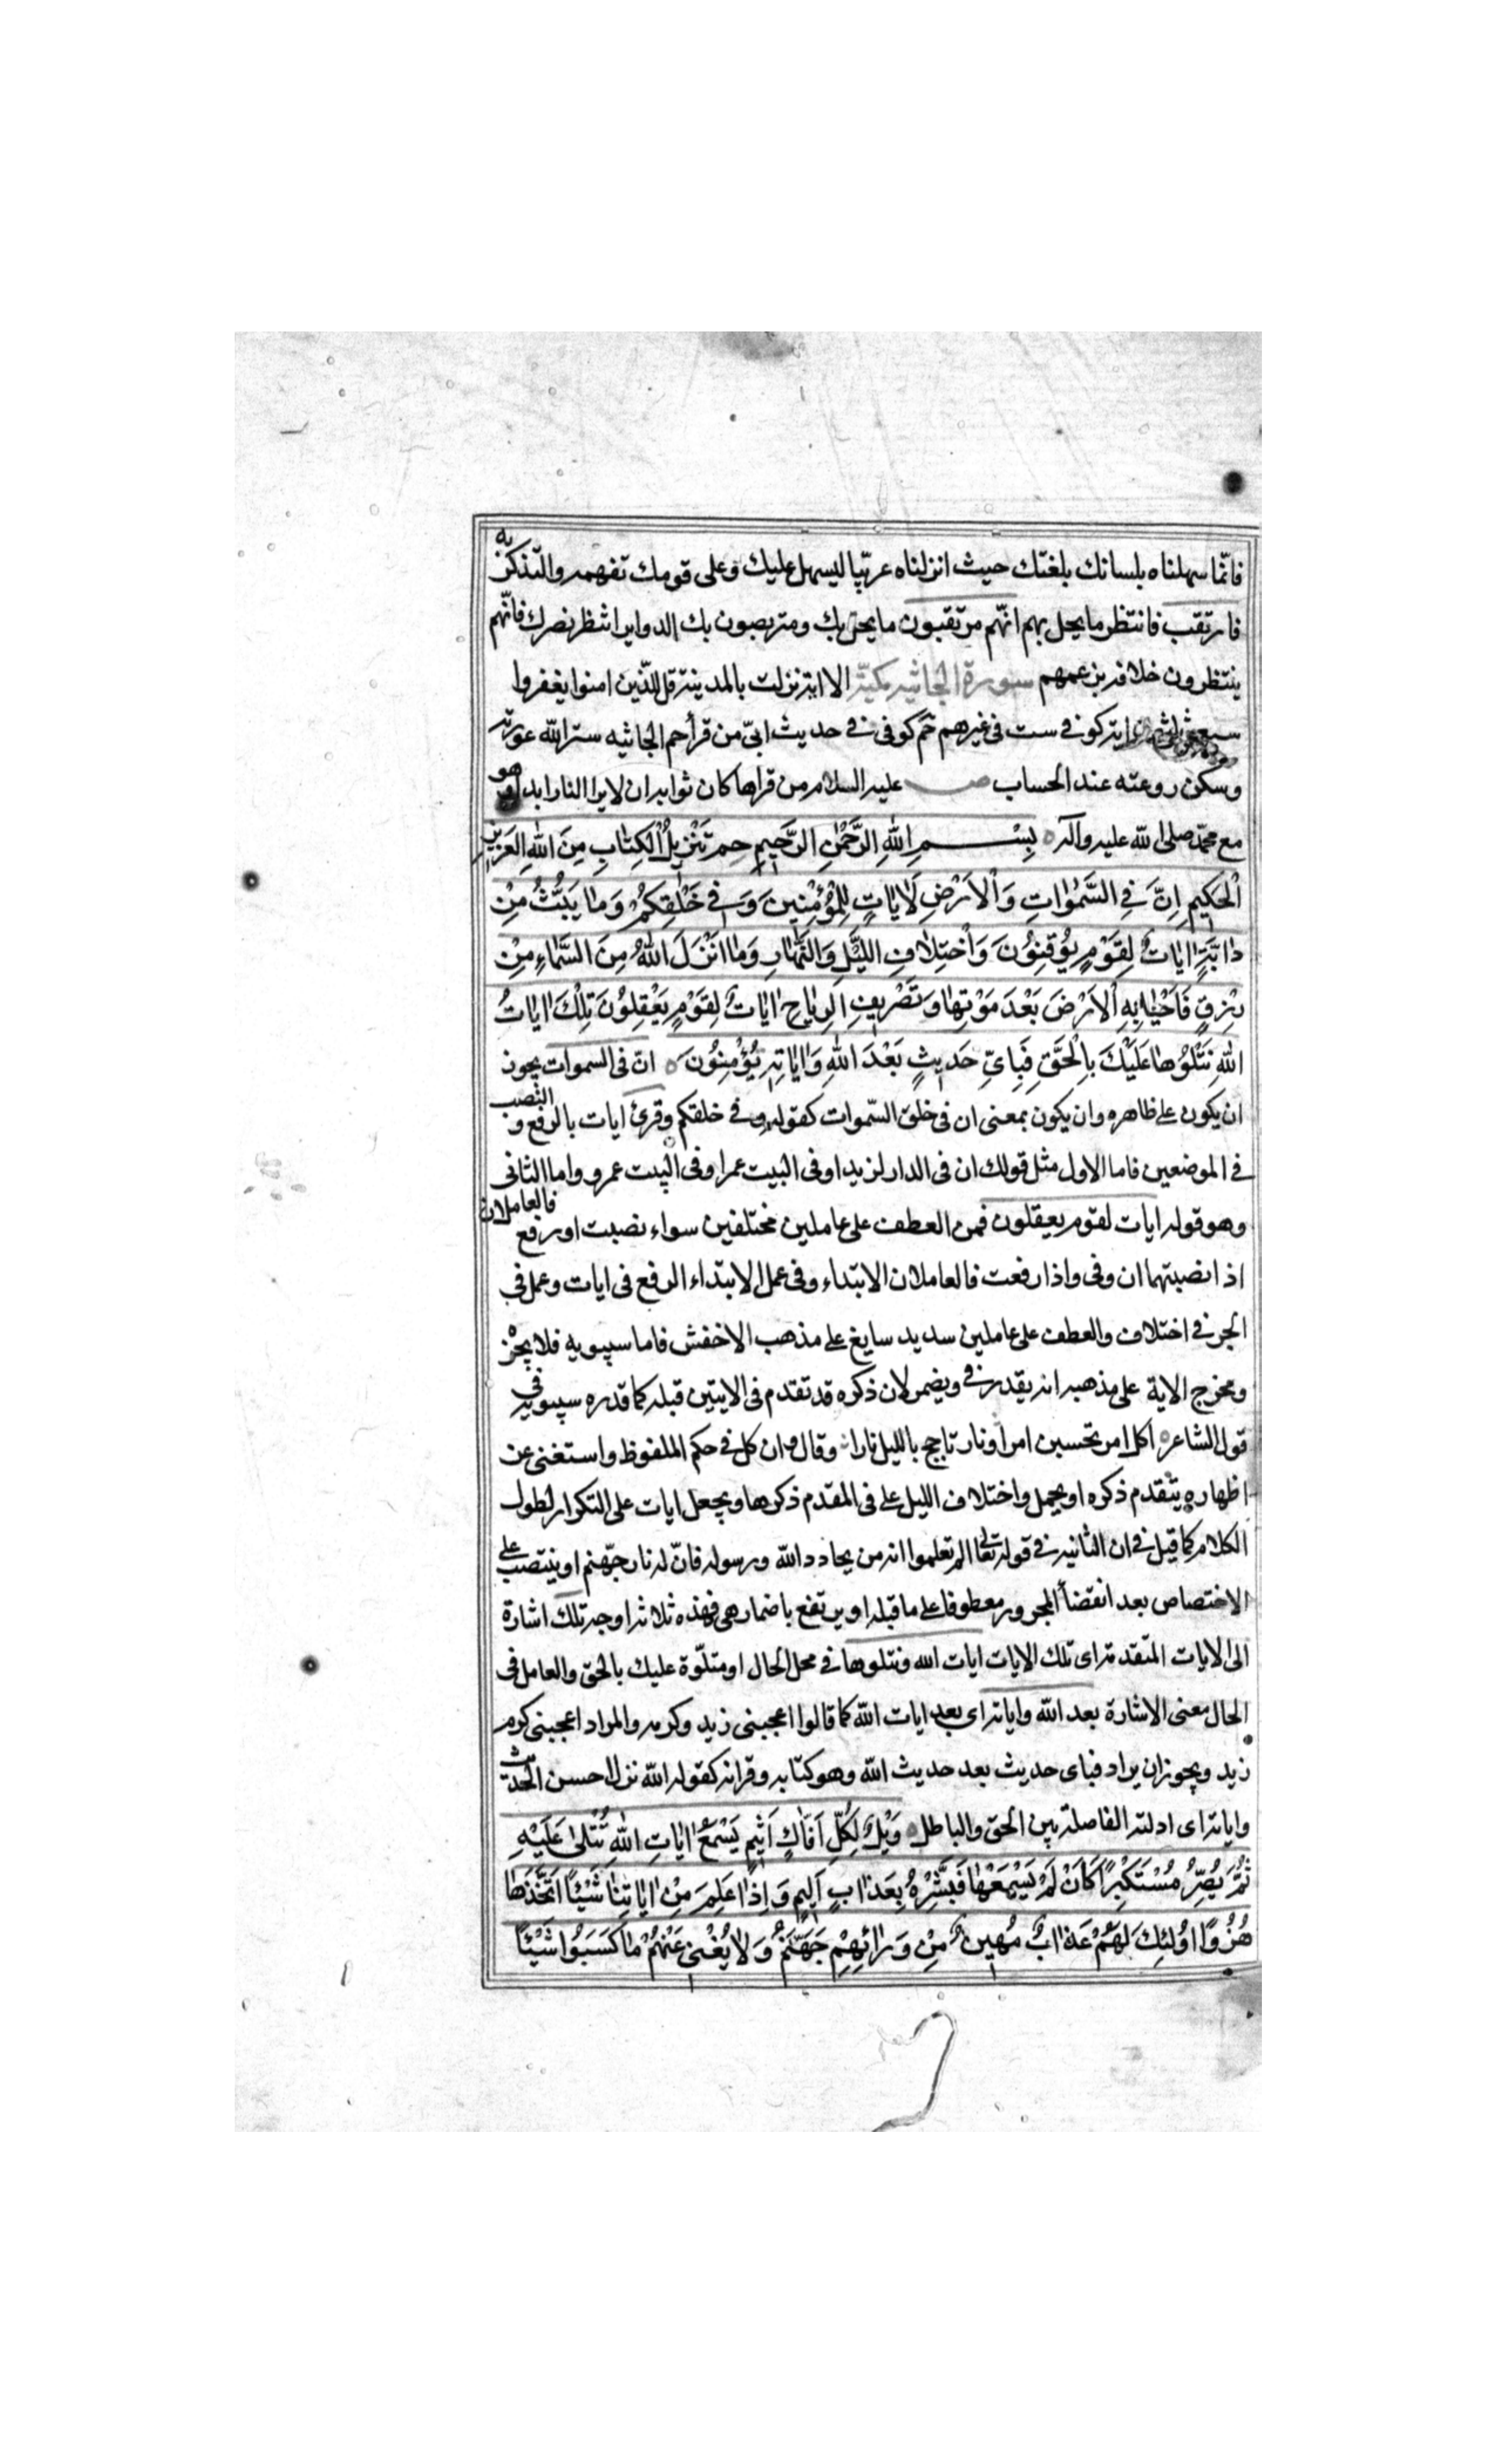 فانّما سهلناه بلسانك بلغتك حيث انزلناه عربيّا ليسهل عليك وعلى قومك تفهمه والتذكر به
فارتقب فانتظر ما يحل بهم انّهم مرتقبون ما يحل بك ومتربصون بك الدواير انتظر نصرك فانّهم
ينتظرون خلافه بزعمهم سورة الجاثيه مكيّة الا اية نزلت بالمدينة قل للّذين امنوا يغفروا
سبع اية كوفى ست فى غيرهم حم كوفى فى حديث ابىّ من قرأ حم الجاثيه ستر الله عورته
وسكن روعته عند الحساب ص عليه السلام من قراها كان ثوابه ان لا يرا النار ابدا وهو
مع محمّد صلى الله عليه وآله بِسْمِ اللهِ الرَّحْمٰنِ الرَّحيمِ حم تَنْزيلُ الْكِتابِ مِنَ اللهِ الْعَزيزِ
الْحَكيمِ اِنَّ فِي السَّمٰواتِ وَالْاَرْضِ لَاٰياتٍ لِلْمُؤْمِنينَ وَفي خَلْقِكُمْ وَمٰا يَبُثُّ مِنْ
دٰابَّةٍ اٰياتٌ لِقَوْمٍ يُوقِنُونَ وَاخْتِلافِ اللَّيْلِ وَالنَّهٰارِ وَمٰا اَنْزَلَ اللهُ مِنَ السَّمٰاءِ مِنْ
رِزْقٍ فَاَحْيٰا بِهِ الْاَرْضَ بَعْدَ مَوْتِهٰا وَتَصْريفِ الرِّيٰاحِ اٰيٰاتٌ لِقَوْمٍ يَعْقِلُونَ تِلْكَ اٰيٰاتُ
اللهِ نَتْلُوهٰا عَلَيْكَ بِالْحَقِّ فَبِاَيِّ حَديثٍ بَعْدَ اللهِ وَاٰيٰاتِهِ يُؤْمِنُونَ انّ فى السموات يجوز
ان يكون على ظاهره وان يكون بمعنى ان فى خلق السّموات كقوله وفى خلقكم وقرئ ايات بالرفع والنصب
فى الموضعين فاما الاول مثل قولك ان فى الدار لزيدا وفى البيت عمرا وفى البيت عمرو واما الثانى
وهو قوله ايات لقوم يعقلون فمن العطف على عاملين مختلفين سواء نصبت او رفع فالعاملان
اذا نصبتهما ان وفى واذا رفعت فالعاملان الابتداء وفى عمل الابتداء الرفع فى ايات وعمل فى
الجر فى اختلاف والعطف على عاملين سديد سايغ على مذهب الاخفش فاما سيبويه فلا يجز
ومخرج الاية على مذهبه انه يقدر فى ويضمر لان ذكره قد تقدم فى الايتين قبله كما قدره سيبويه فى
قول الشاعر اكل امر تحسبين امرا ونار تاجج بالليل نارا وقال وان كل فى حكم الملفوظ واستغنى عن
اظهاره بتقدم ذكره او يحمل واختلاف الليل على فى المقدم ذكرها ويجعل ايات على التكرار لطول
الكلام كما قيل فى ان الثانيه فى قوله تعالى الم تعلموا انه من يحادد الله ورسوله فانّ له نار جهّنم او ينتصب على
الاختصاص بعد انقضأ المجرور معطوفا على ما قبله او يرتفع باضمار هى فهذه ثلاثة اوجه تلك اشارة
الى الايات المتقدمة اى تلك الايات ايات الله ونتلوها فى محل الحال او متلوّة عليك بالحق والعامل فى
الحال معنى الاشارة بعد الله واياته اى بعد ايات الله كما قالوا اعجبنى زيد وكرمه والمراد اعجبنى كرم
زيد ويجوز ان يراد فباى حديث بعد حديث الله وهو كتابه وقرانه كقوله الله نزل احسن الحديث
واياته اى ادلته الفاصلة بين الحق والباطل وَيْلٌ لِكُلِّ اَفّٰاكٍ اَثيمٍ يَسْمَعُ اٰيٰاتِ اللهِ تُتْلىٰ عَلَيْهِ
ثُمَّ يُصِرُّ مُسْتَكْبِرًا كَاَنْ لَمْ يَسْمَعْهٰا فَبَشِّرْهُ بِعَذٰابٍ اَليمٍ وَاِذٰا عَلِمَ مِنْ اٰيٰاتِنٰا شَيْئًا اتَّخَذَهٰا
هُزُوًا اُولٰئِكَ لَهُمْ عَذٰابٌ مُهينٌ مِنْ وَرٰائِهِمْ جَهَنَّمُ وَلٰا يُغْنى عَنْهُمْ مٰا كَسَبُوا شَيْئًا